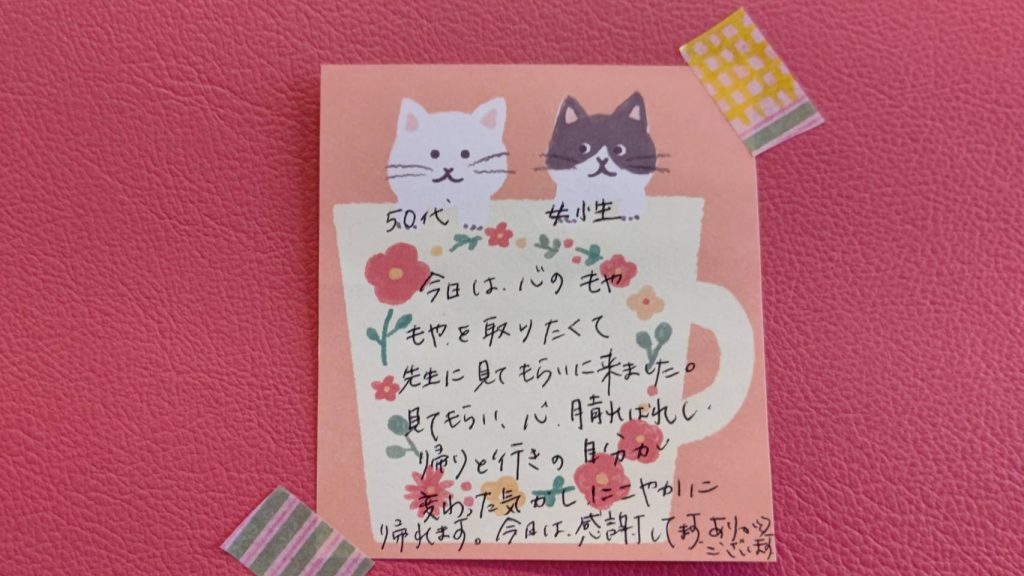 50代 女性
今日は、心のもや
もやを取りたくて
先生に見てもらいに来ました。
見てもらい、心、晴ればれし、
帰りと行きの自分が
変わった気がしにこやかに
帰れます。今日は、感謝してます ありがとう
ございます